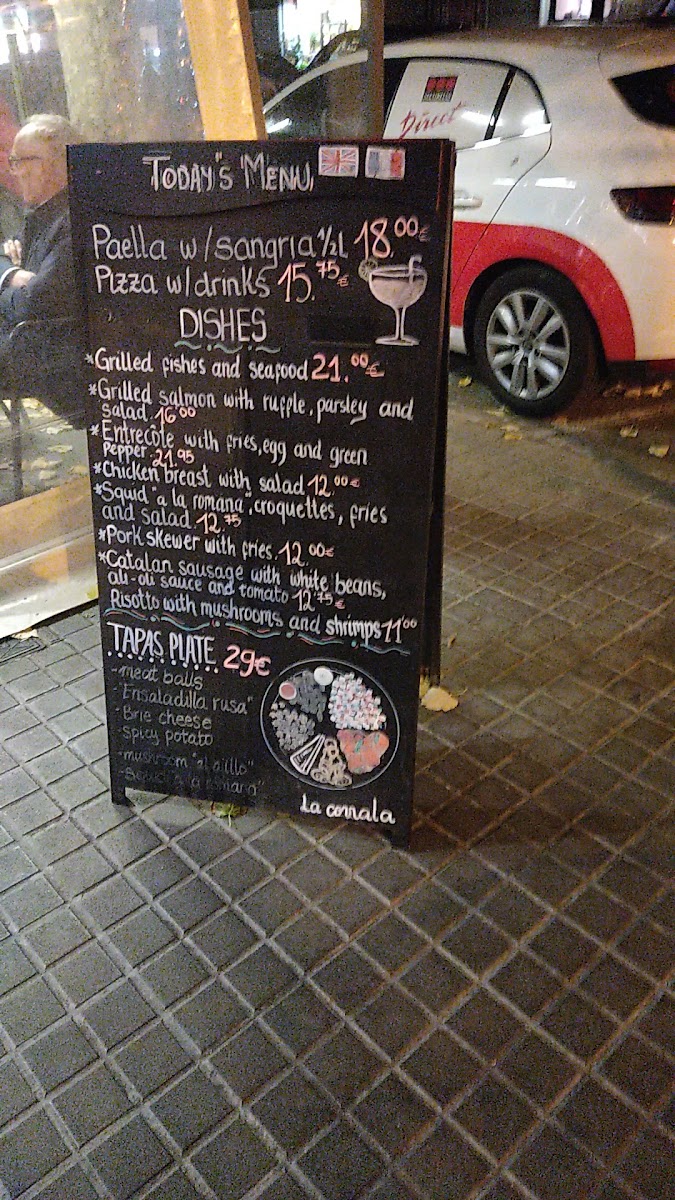 TODAY'S MENU
Paella w/sangria ½L 18.00€
Pizza w/drinks 15.75€
DISHES
*Grilled fishes and seafood 21.00€
*Grilled salmon with ruffle, parsley and
salad. 16.00
*Entrecôte with fries, egg and green
pepper. 21.95
*Chicken breast with salad 12.00€
*Squid "a la romana", croquettes, fries
and salad. 12.75
*Pork skewer with fries. 12.00€
*Catalan sausage with white beans,
ali-oli sauce and tomato 12.75€
Risotto with mushrooms and shrimps 11.00
TAPAS PLATE 29€
-meat balls
-"Ensaladilla rusa"
-Brie cheese
-Spicy potato
-mushroom "al ajillo"
-Squid "a la romana"
La corrala
Direct